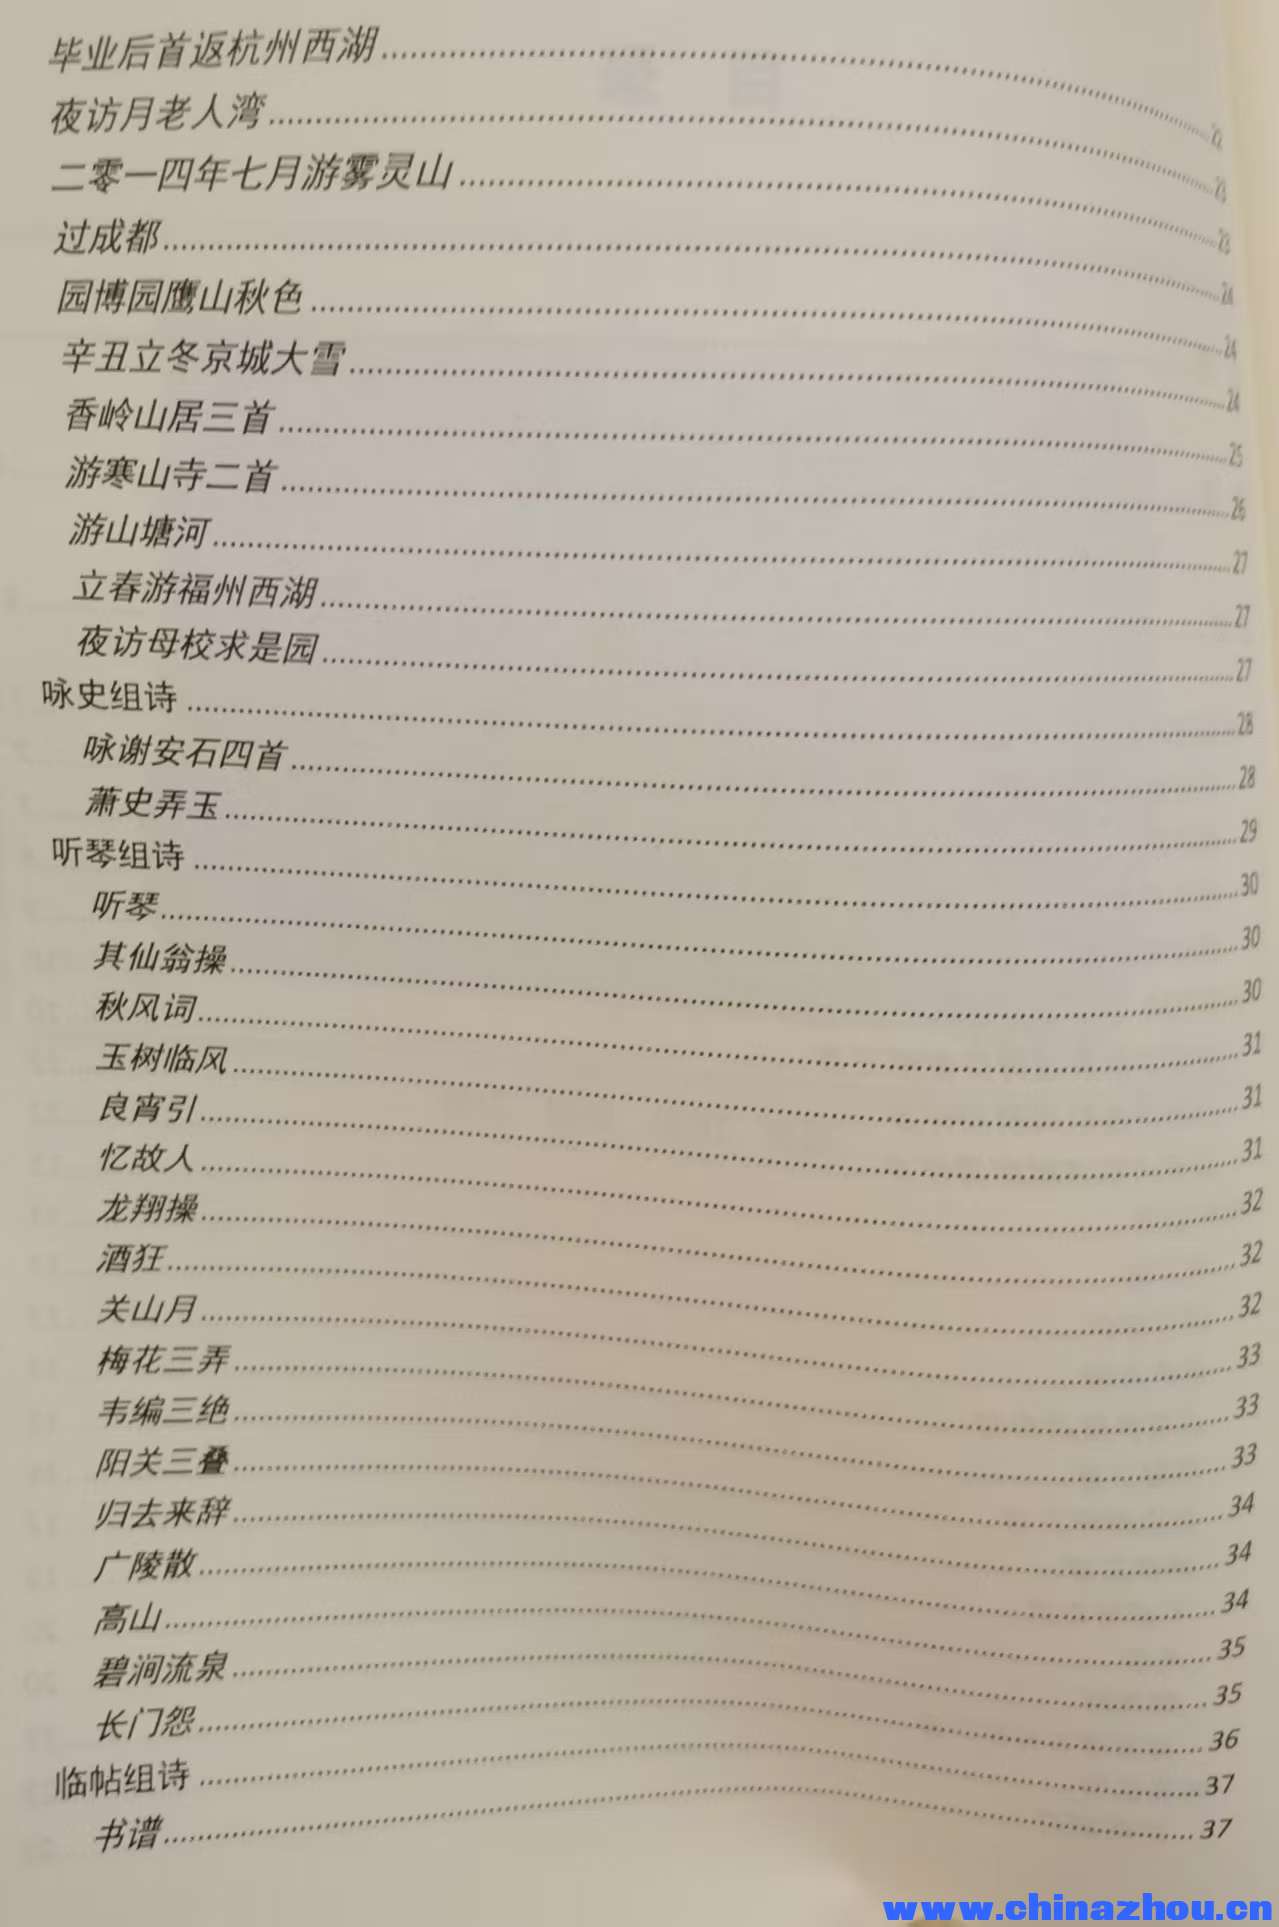 毕业后首返杭州西湖 22
夜访月老人湾 23
二零一四年七月游雾灵山 23
过成都 24
园博园鹰山秋色 24
辛丑立冬京城大雪 24
香岭山居三首 25
游寒山寺二首 26
游山塘河 27
立春游福州西湖 27
夜访母校求是园 27
咏史组诗 28
咏谢安石四首 28
萧史弄玉 29
听琴组诗 30
听琴 30
其仙翁操 30
秋风词 31
玉树临风 31
良宵引 31
忆故人 32
龙翔操 32
酒狂 32
关山月 33
梅花三弄 33
韦编三绝 33
阳关三叠 34
归去来辞 34
广陵散 34
高山 35
碧涧流泉 35
长门怨 36
临帖组诗 37
书谱 37
www.chinazhou.cn